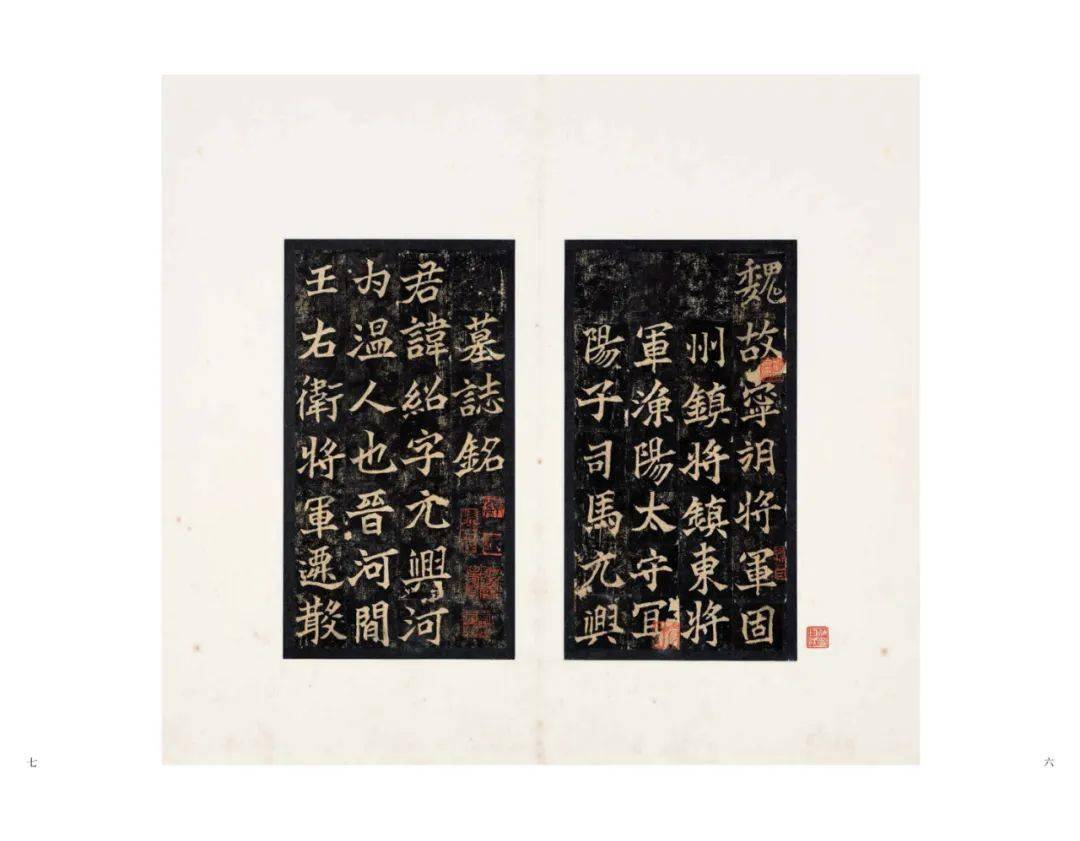 魏故寧朔將軍固
州鎮將鎮東將
軍漁陽太守宜
陽子司馬元興
墓誌銘
君諱紹字元興河
内溫人也晉河間
王右衛將軍遷散
六
七